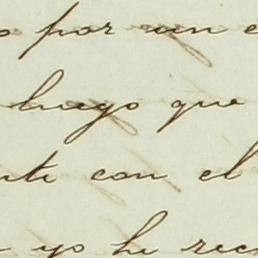 o por un e
luego que
nte con el
yo he rec